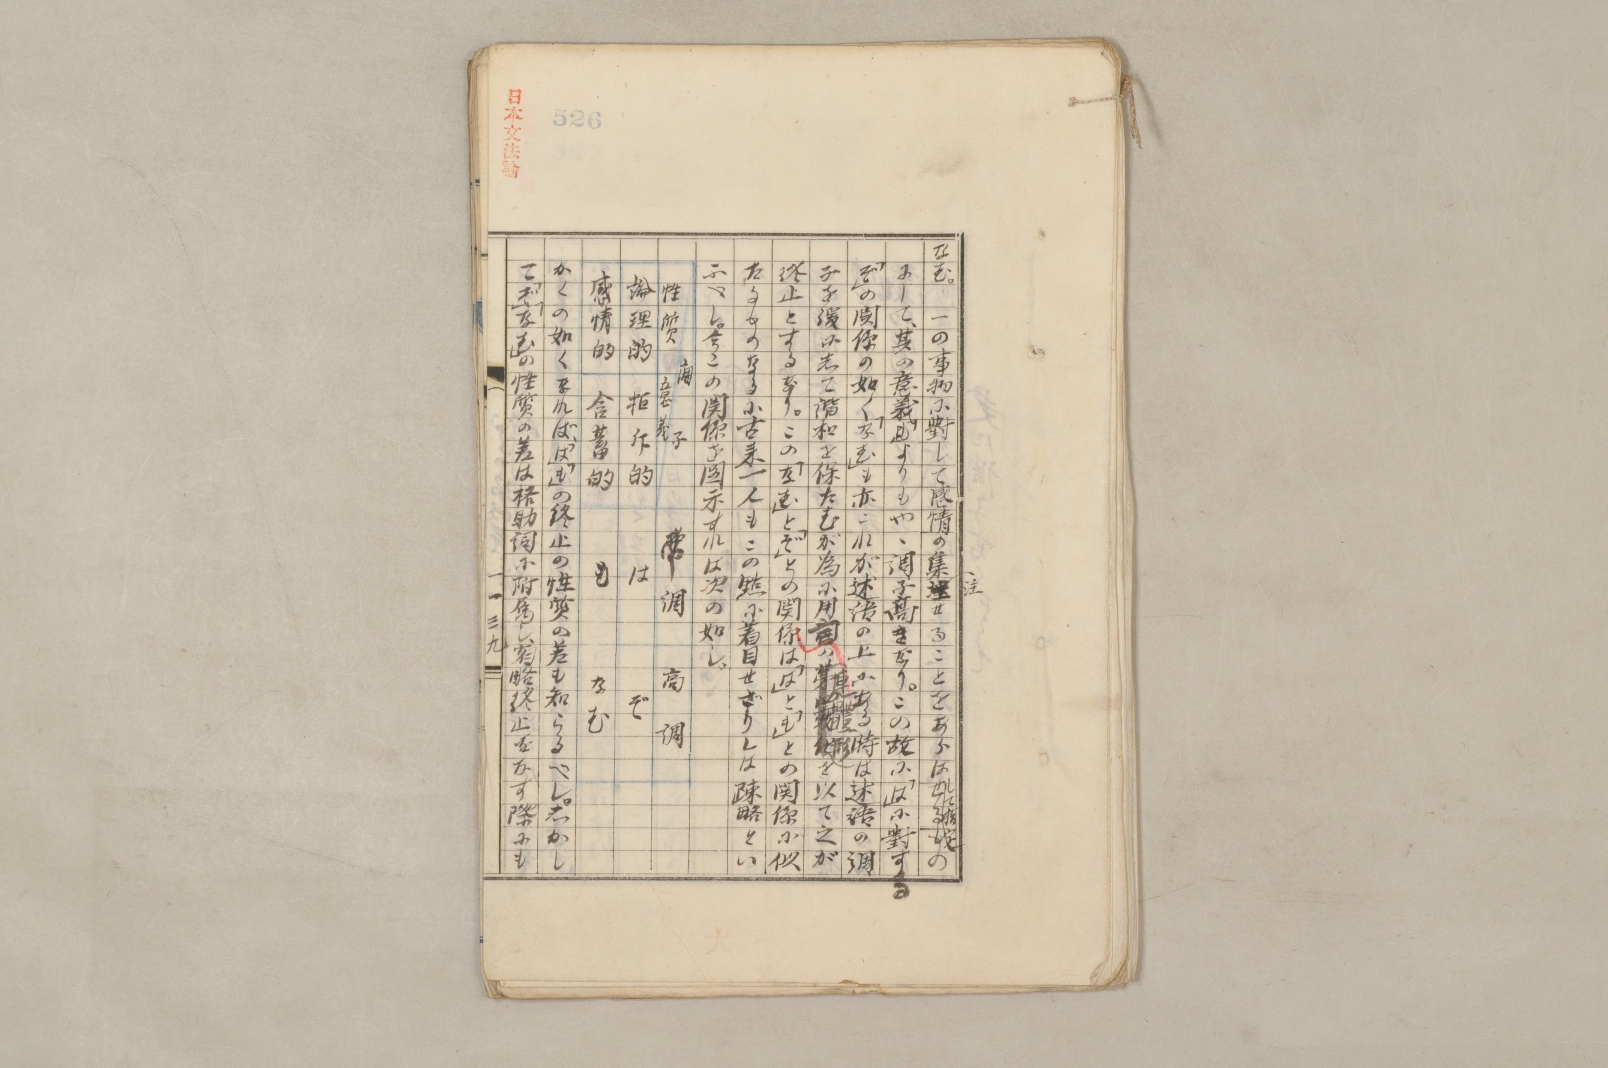 日本文法論
526
なむ。一の事物に對して感情の集注せることをあらはせるものの
にして、其の意義「も」よりもやゝ調子高きなり。この故に「は」に對する
「ぞ」の関係の如く「なむ」も亦これが述語の上にある時は述語の調
子を緩にして諧和を保たむが為に用詞の連體形を以て之が
終止とするなり。この「なむ」と「ぞ」との関係は「は」と「も」との関係に似
たるものなるに古来一人もこの點に着目せざりしは疎略とい
ふべし。今この関係を図示すれば次の如し。
性質 意義 調子 平調 高調
論理的 拒斥的 は ぞ
感情的 含蓄的 も なむ
かくの如くなれば、「は」「も」の終止の性質の差も知らるべし。しかし
て「ぞ」「なむ」の性質の差は格助詞に附属し、省略終止をなす際にも
一一三九